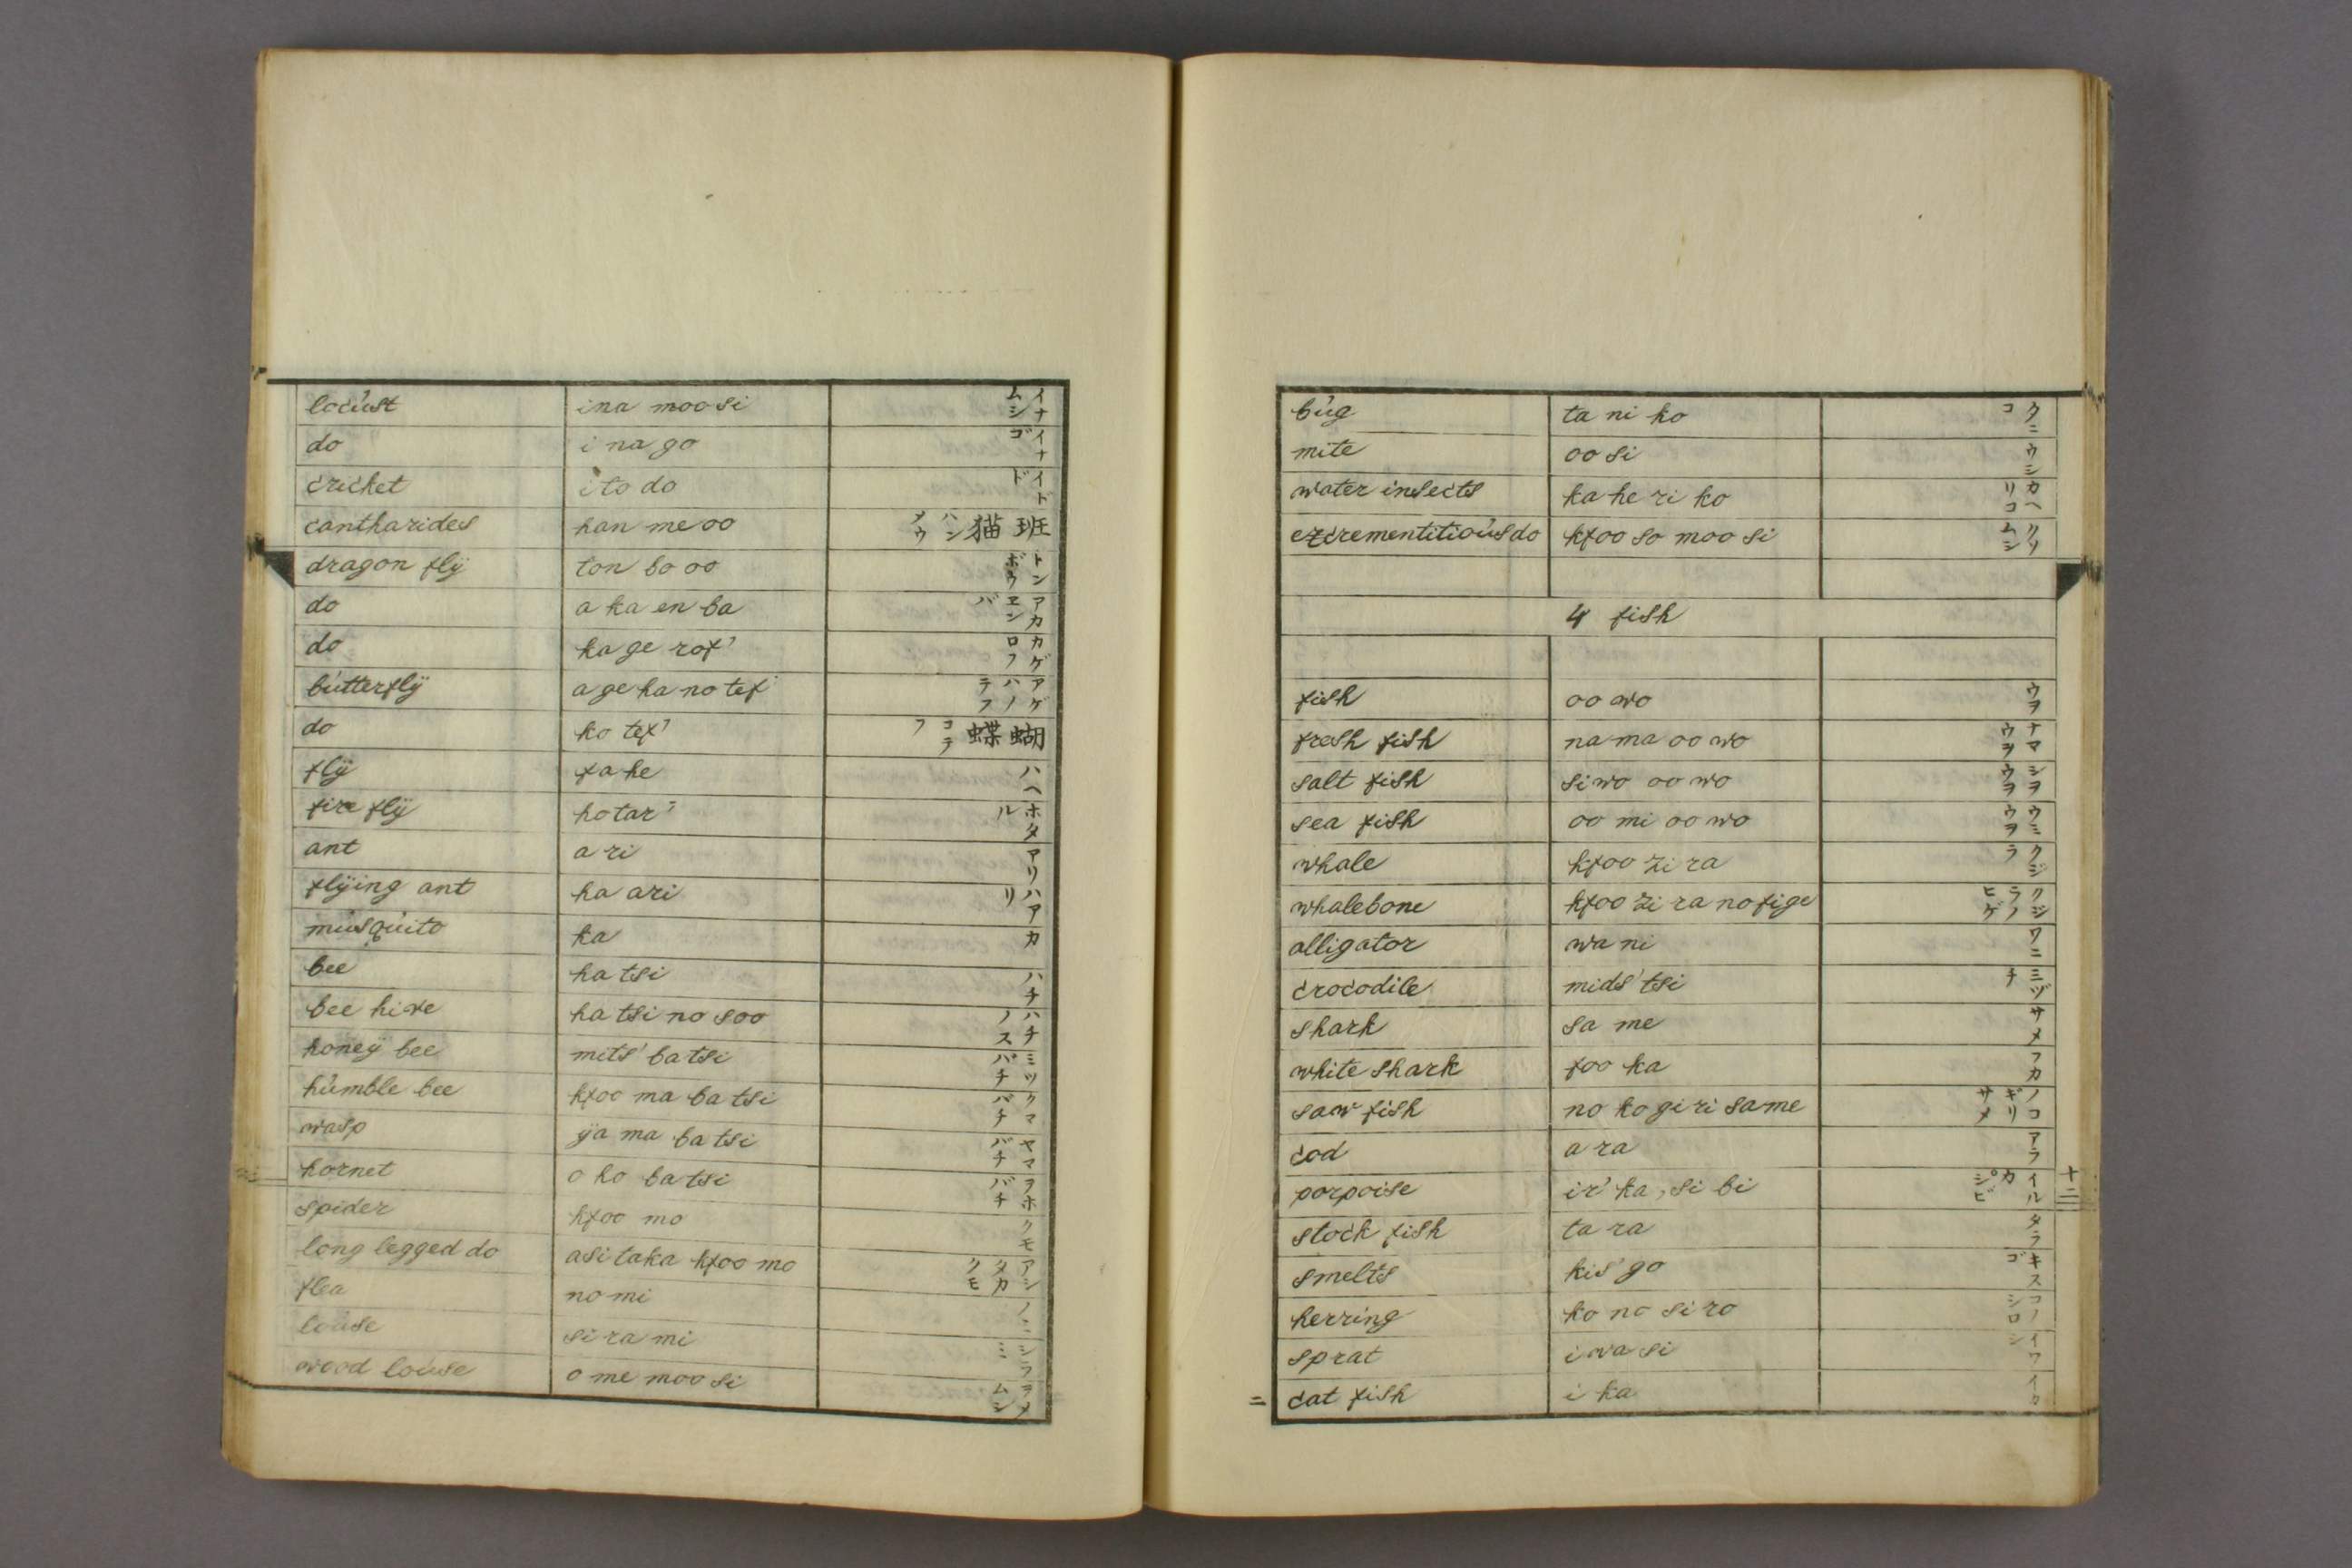 locúst ina moo si イナムシ
do i na go イナゴ
cricket i to do イトド
cantharides han me oo 班猫 ハンメウ
dragon flÿ ton bo oo トンボウ
do a ka en ba アカヱンバ
do ka ge rof' カゲロフ
bútterflÿ a ge ha no tef' アゲハノテフ
do ko tef' 蝴蝶 コテフ
flÿ fa he ハヘ
fire flÿ ho tar' ホタル
ant a ri アリ
flÿing ant ha ari ハアリ
músqúito ka カ
bee ha tsi ハチ
bee hive ha tsi no soo ハチノス
honeÿ bee mits' ba tsi ミツバチ
húmble bee kfoo ma ba tsi クマバチ
wasp ÿa ma ba tsi ヤマバチ
hornet o ho ba tsi ヲホバチ
spider kfoo mo クモ
long legged do asi taka kfoo mo アシタカクモ
flea no mi ノミ
loúse si ra mi シラミ
wood loúse o me moo si ヲメムシ
búg ta ni ko タニコ
mite oo si ウシ
water insects ka he ri ko カヘリコ
excrementitioús do kfoo so moo si クソムシ
4 fish
fish oo wo ウヲ
fresh fish na ma oo wo ナマウヲ
salt fish si wo oo wo シヲウヲ
sea fish oo mi oo wo ウミウヲ
whale kfoo zi ra クジラ
whalebone kfoo zi ra no fige クジラノヒゲ
alligator wa ni ワニ
crocodile mids' tsi ミヅチ
shark sa me サメ
white shark foo ka フカ
saw fish no ko gi ri same ノコギリサメ
cod a ra アラ
porpoise ir' ka, si bi イルカ シビ
stock fish ta ra タラ
smelts kis' go キスゴ
herring ko no si ro コノシロ
sprat i wa si イワシ
cat fish i ka イカ
十二